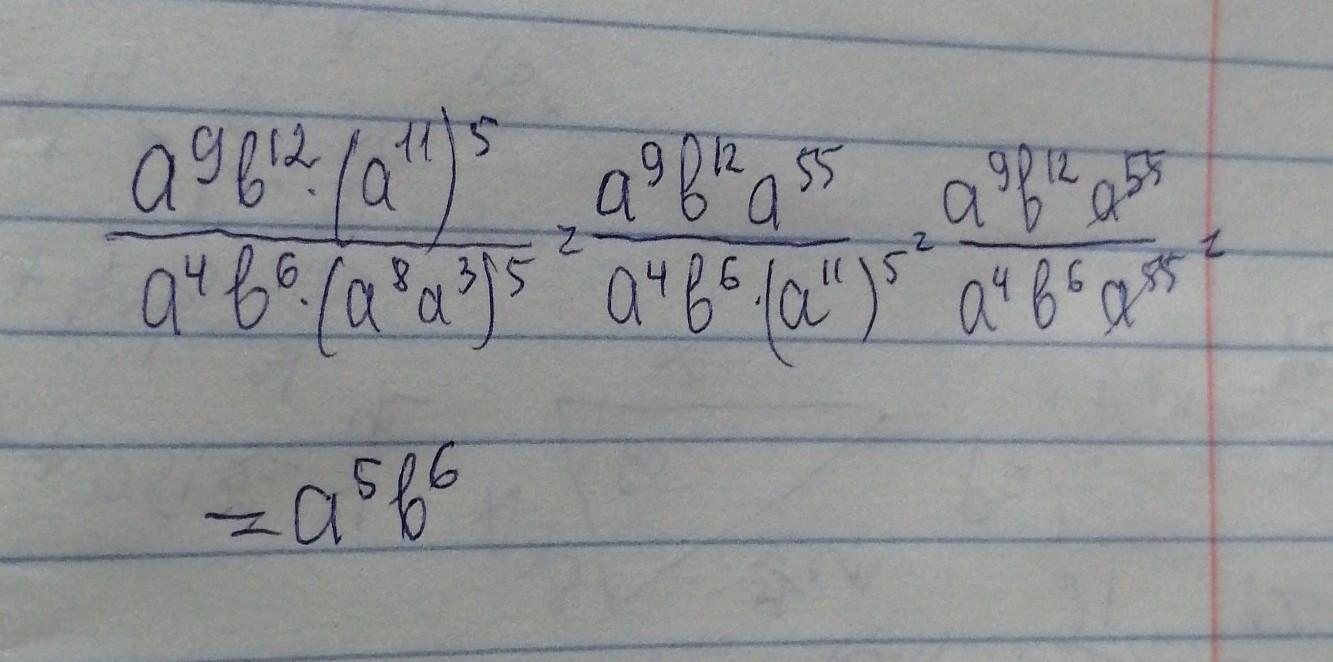 \frac{a^9 b^{12} \cdot (a^{11})^5}{a^4 b^6 \cdot (a^8 a^3)^5} = \frac{a^9 b^{12} a^{55}}{a^4 b^6 \cdot (a^{11})^5} = \frac{a^9 b^{12} a^{55}}{a^4 b^6 a^{55}} =
= a^5 b^6